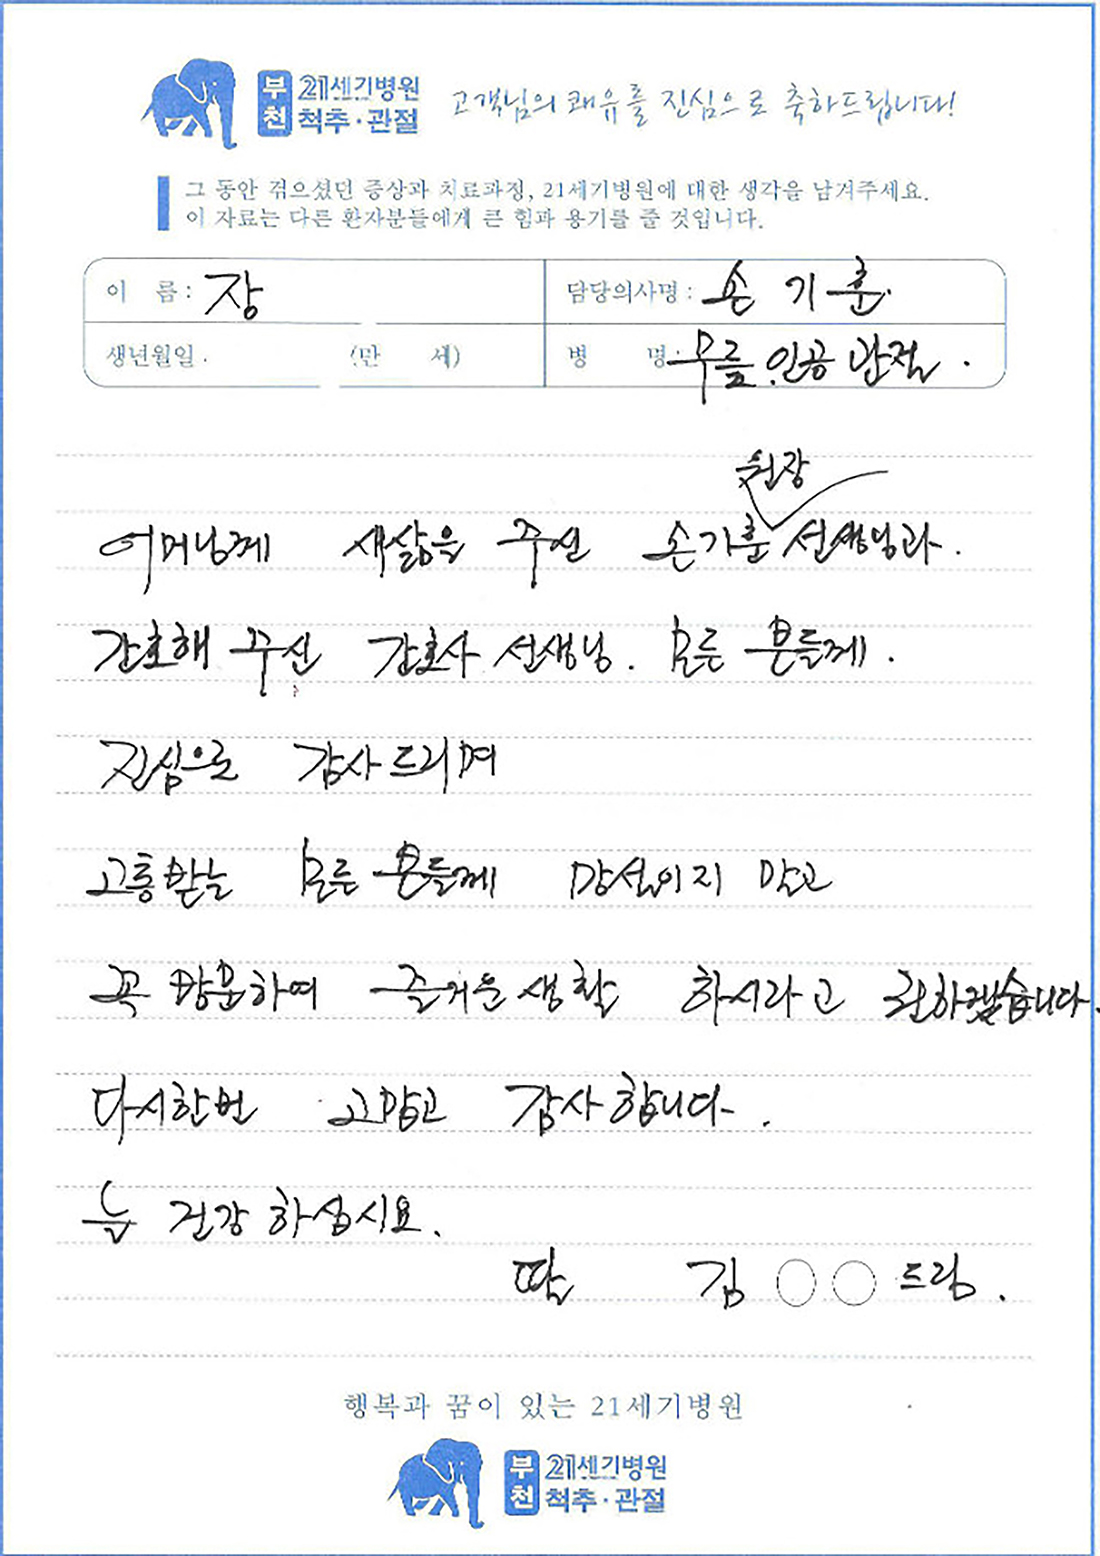 부천 21세기병원 척추·관절
고객님의 쾌유를 진심으로 축하드립니다!
그 동안 겪으셨던 증상과 치료과정, 21세기병원에 대한 생각을 남겨주세요.
이 자료는 다른 환자분들에게 큰 힘과 용기를 줄 것입니다.
이 름 : 장
담당의사명 : 손 기 훈.
생년월일 . (만 세)
병 명 : 무릎 인공 관절 .
원장
어머님께 새삶을 주신 손기훈 선생님과.
간호해 주신 간호사 선생님. 모든 분들께.
진심으로 감사드리며
고통받는 모든 분들께 망설이지 말고
꼭 방문하여 즐거운 생활 하시라고 권하겠습니다.
다시한번 고맙고 감사합니다.
늘 건강 하십시요.
딸 김 ○○ 드림.
행복과 꿈이 있는 21세기병원
부천 21세기병원 척추·관절